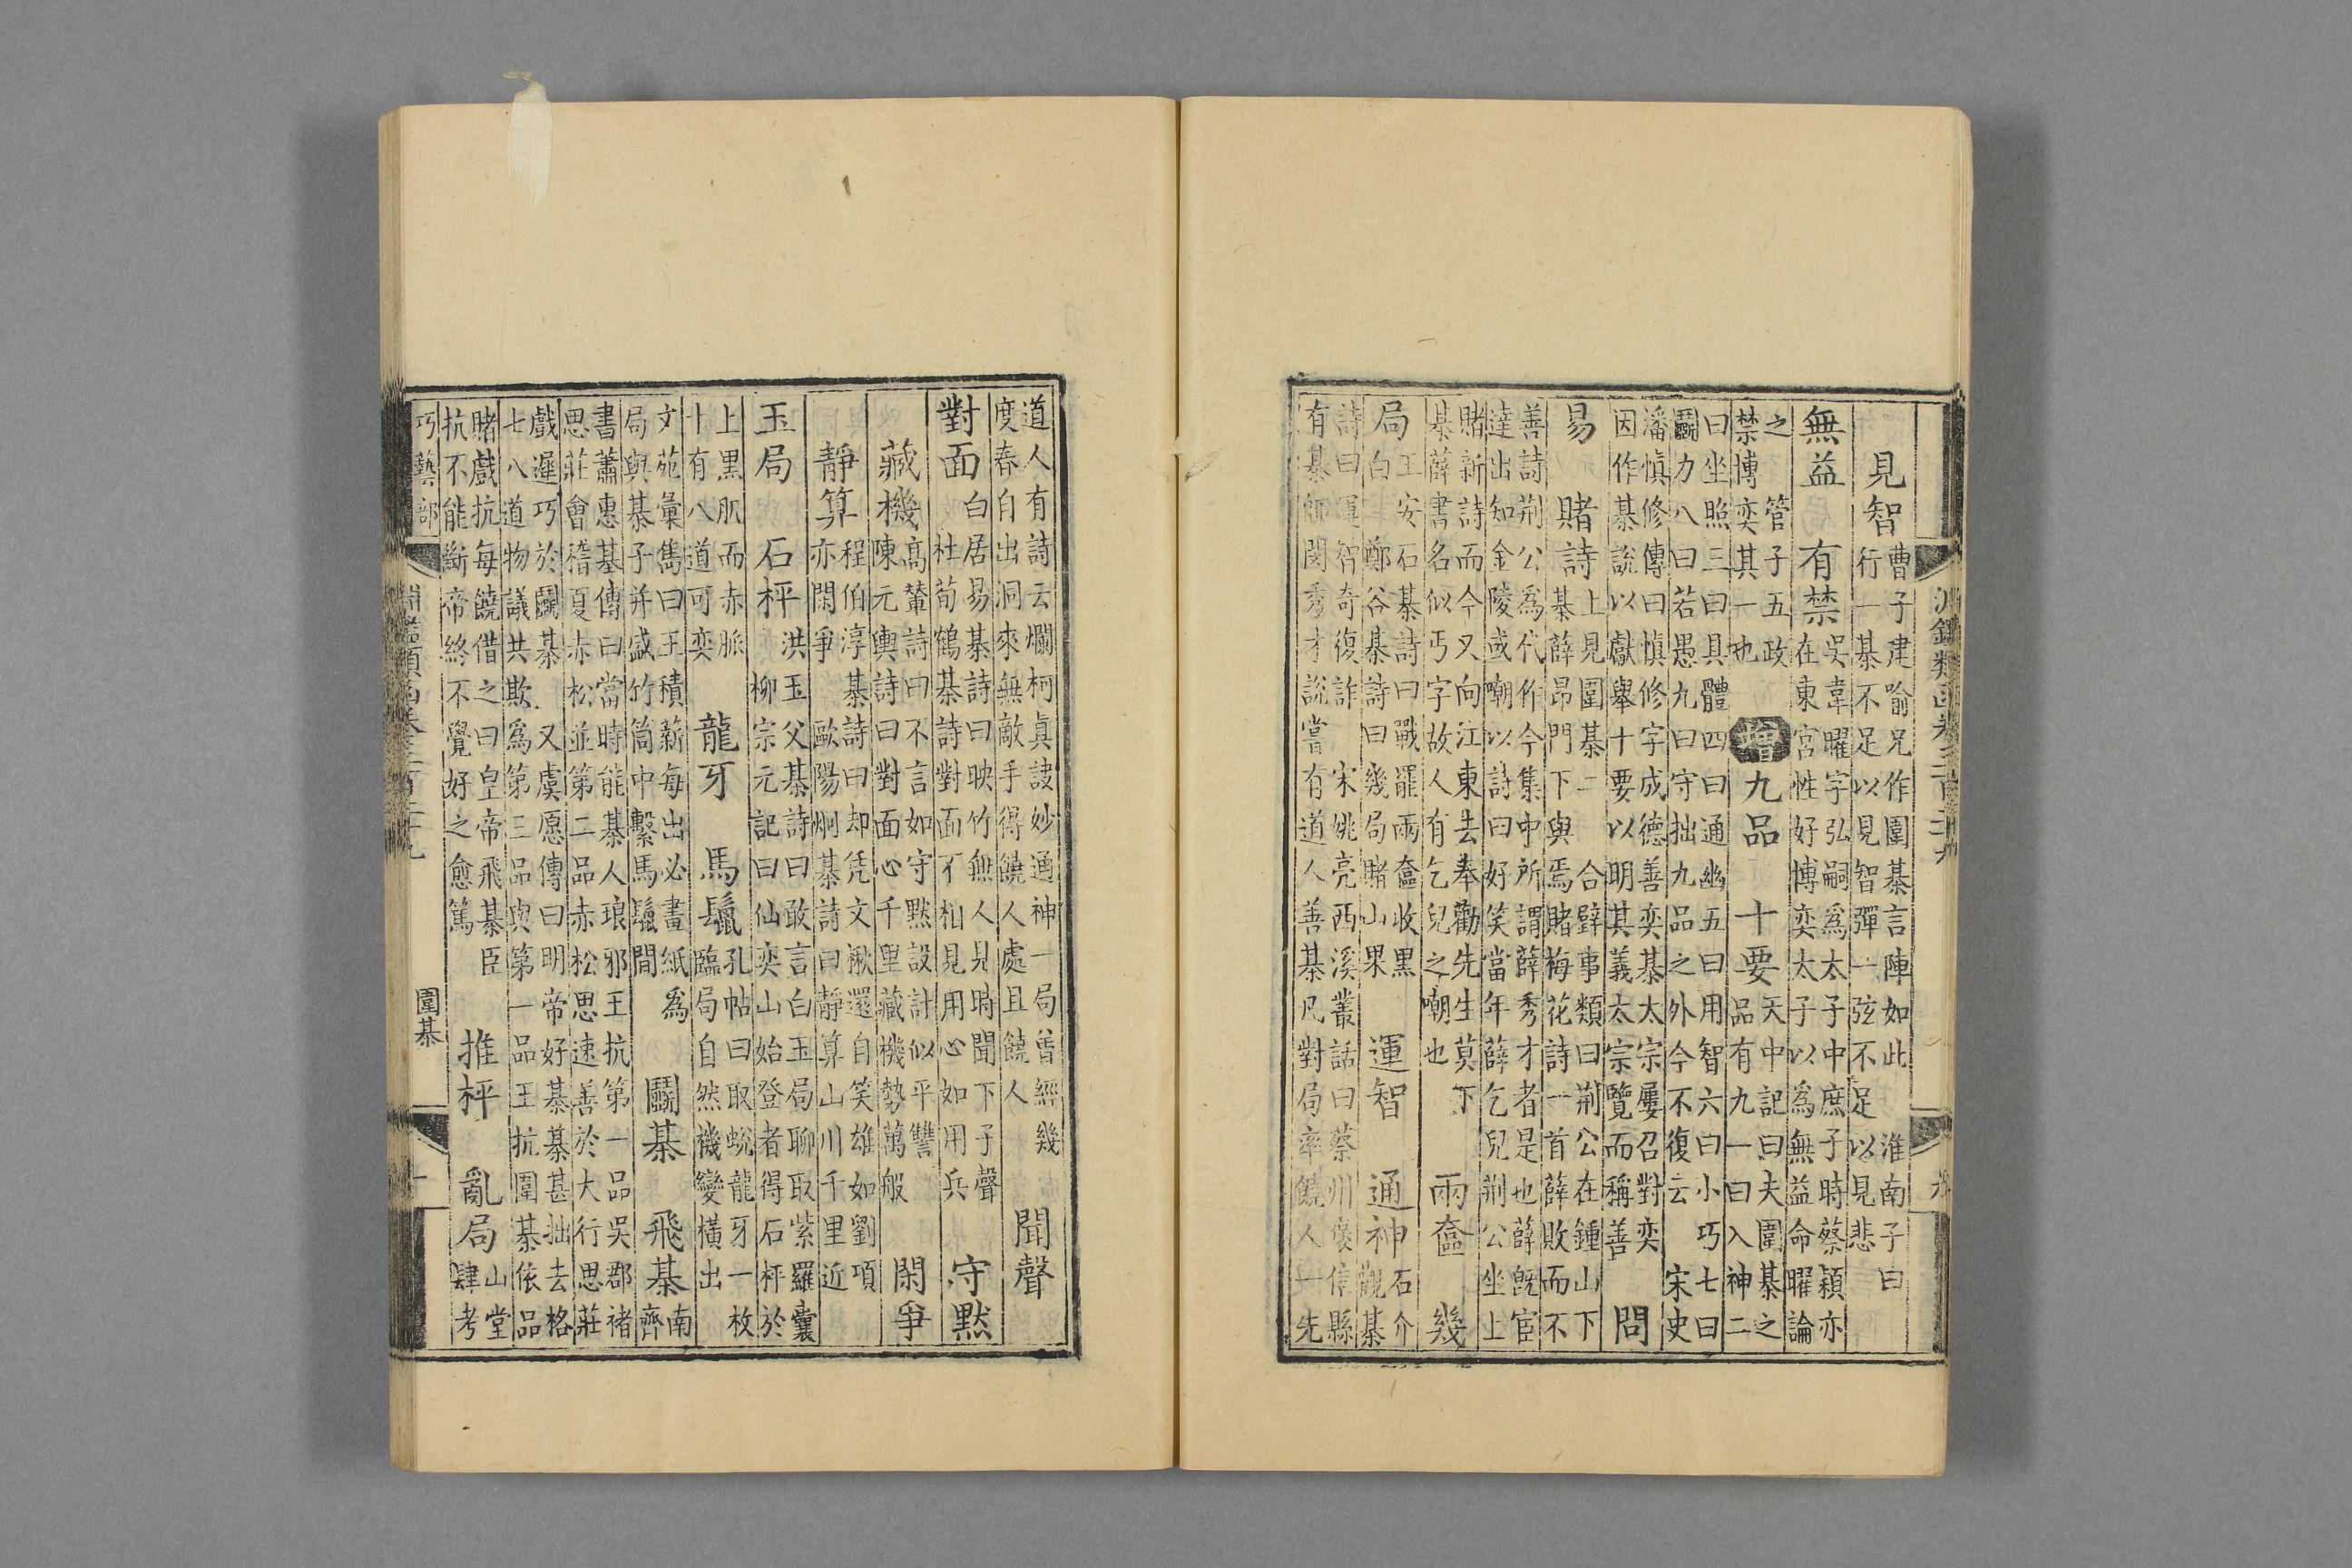 淵鑑類函卷三百二十九
見智 曹子建喻兄作圍棊言陣如此 淮南子曰
行一棊不足以見智彈一弦不足以見悲
無益 有禁 吳韋曜字弘嗣爲太子中庶子時蔡穎亦
在東宮性好博奕太子以爲無益命曜論
之 管子五政
禁博奕其一也
增 九品 十要 天中記曰夫圍棊之
品有九一曰入神二
曰坐照三曰具體四曰通幽五曰用智六曰小巧七曰
鬬力八曰若愚九曰守拙九品之外今不復云 宋史
潘慎修傳曰慎修字成德善奕棊太宗屢召對奕
因作棊說以獻舉十要以明其義太宗覽而稱善
問
易 賭詩 上見圍棊二 合璧事類曰荆公在鍾山下
棊薛昂門下與焉賭梅花詩一首薛敗而不
善詩荆公爲代作今集中所謂薛秀才者是也薛旣宦
達出知金陵或嘲以詩曰好笑當年薛乞兒荆公坐上
賭新詩而今又向江東去奉勸先生莫下
棊薛書名似丐字故人有乞兒之嘲也
兩奩 幾
局 王安石棊詩曰戰罷兩奩收黑
白 鄭谷棊詩曰幾局賭山果
運智 通神 石介
觀棊
詩曰運智奇復詐 宋姚亮西溪叢話曰蔡州褒信縣
有棊師閔秀才說嘗有道人善棊凡對局率饒人一先
道人有詩云爛柯眞訣妙通神一局曾經幾
度春自出洞來無敵手得饒人處且饒人
聞聲
對面 白居易棊詩曰映竹無人見時聞下子聲
杜荀鶴棊詩對面不相見用心如用兵
守默
藏機 髙輦詩曰不言如守默設計似平讐
陳元輿詩曰對面心千里藏機勢萬般
閑爭
靜算 程伯淳棊詩曰却凭文楸還自笑雄如劉項
亦閑爭 歐陽炯棊詩曰靜算山川千里近
玉局 石枰 洪玉父棊詩曰敢言白玉局聊取紫羅囊
柳宗元記曰仙奕山始登者得石枰於
上黑肌而赤脈
十有八道可奕
龍牙 馬鬛 孔帖曰取蛻龍牙一枚
臨局自然禨變橫出
文苑彙雋曰王積薪每出必畫紙爲
局與棊子并盛竹筒中繫馬鬛間
鬬棊 飛棊 南
齊
書蕭惠基傳曰當時能棊人琅邪王抗第一品吳郡褚
思莊會稽夏赤松並第二品赤松思速善於大行思莊
戲遲巧於鬬棊 又虞愿傳曰明帝好棊甚拙去格
七八道物議共欺爲第三品與第一品王抗圍棊依品
賭戲抗每饒借之曰皇帝飛棊臣
抗不能斷帝終不覺好之愈篤
推枰 亂局 山堂
肆考
巧藝部
淵鑑類函卷三百二十九
圍棊